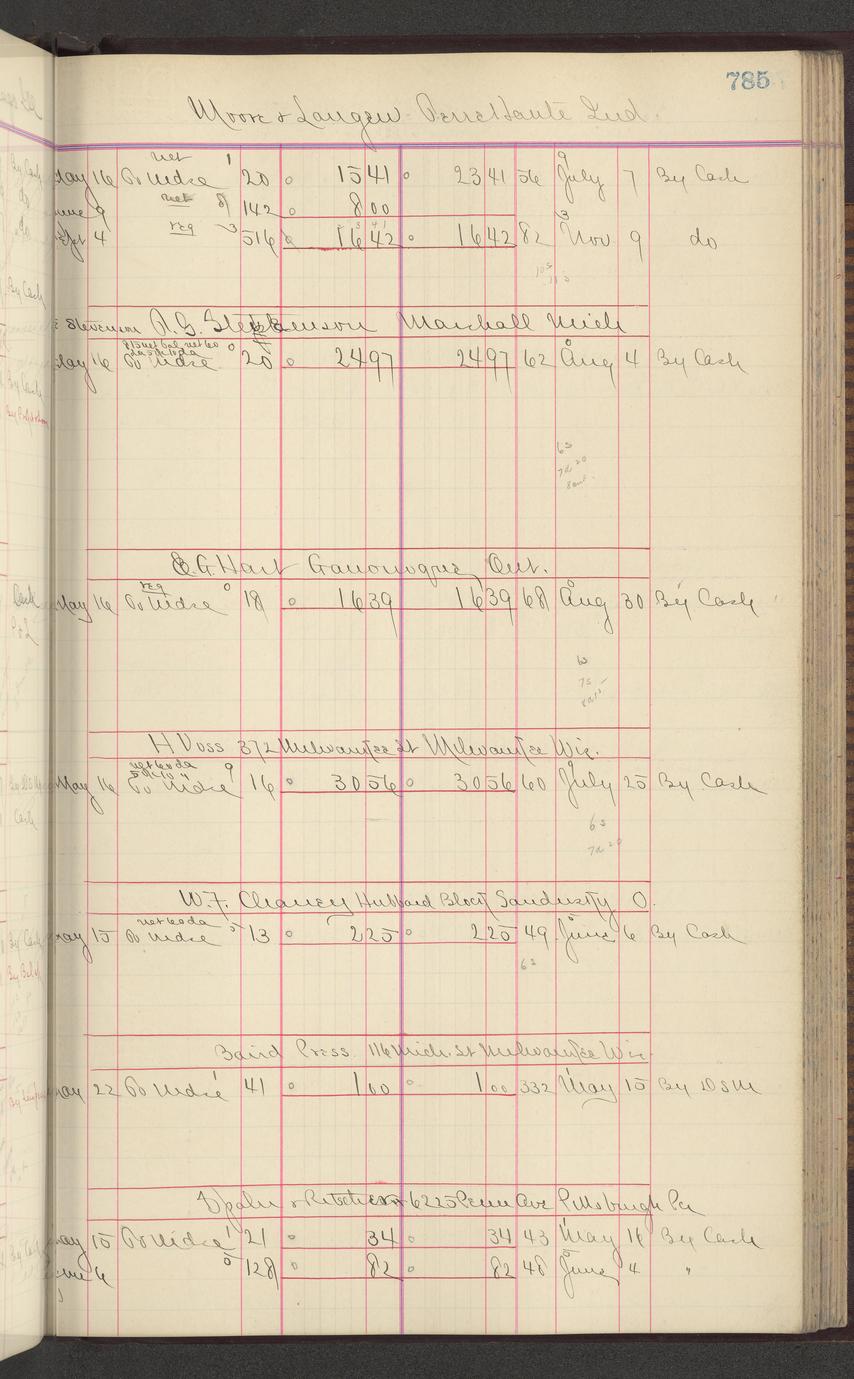 785
Moore & Langen Terre Haute Ind.
May 16 net To Mdse 1 20 15 41 23 41 56 9 July 7 By Cash
June 9 net 8 142 8 00
Sept 4 reg 3 516 16 42 16 42 82 3 Nov 9 do
Stevenson R.G. Stephenson Marshall Mich
May 16 To Mdse 0 20 24 97 24 97 62 Aug 4 By Cash
6s
7a 20
E.G. Hart Gananoque, Ont.
May 16 reg To Mdse 0 18 16 39 16 39 68 Aug 30 By Cash
7s
H Voss 372 Milwaukee St Milwaukee Wis.
net 60 da
May 16 To Mdse 9 16 30 56 30 56 60 9 July 25 By Cash
6s
7a 20
W.F. Chaney Hubbard Block Sandusky O.
net 60 da
May 15 To Mdse 13 2 25 2 25 49 June 6 By Cash
6s
Baird Press 116 Mich. St Milwaukee Wis.
May 22 To Mdse 1 41 1 00 1 00 332 May 15 By DSM
& 6225 Penn Ave Pittsburgh Pa
May 15 To Mdse 1 21 34 34 43 May 16 By Cash
June 6 0 128 82 82 48 June 4 "